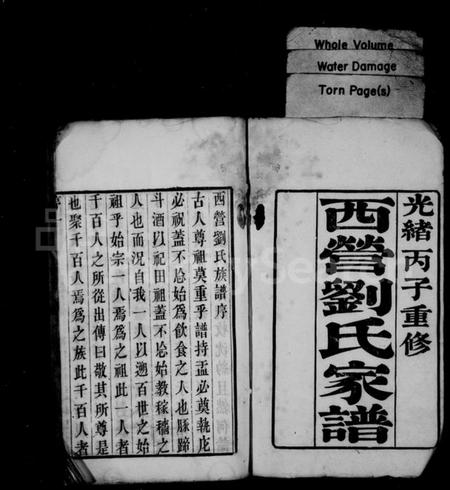 Whole Volume
Water Damage
Torn Page(s)
光緒丙子重修
西營劉氏家譜
西營劉氏族譜序
古人尊祖莫重乎譜持盂必奠執庀
必祝蓋不忘始為飲食之人也豚蹄
斗酒以祀田祖蓋不忘始教稼穡之
人也而況自我一人以遡百世之始
祖乎始宗一人焉為之祖此一人者
千百人之所從出傳曰敬其所尊是
也聚千百人焉為之族此千百人者
序一